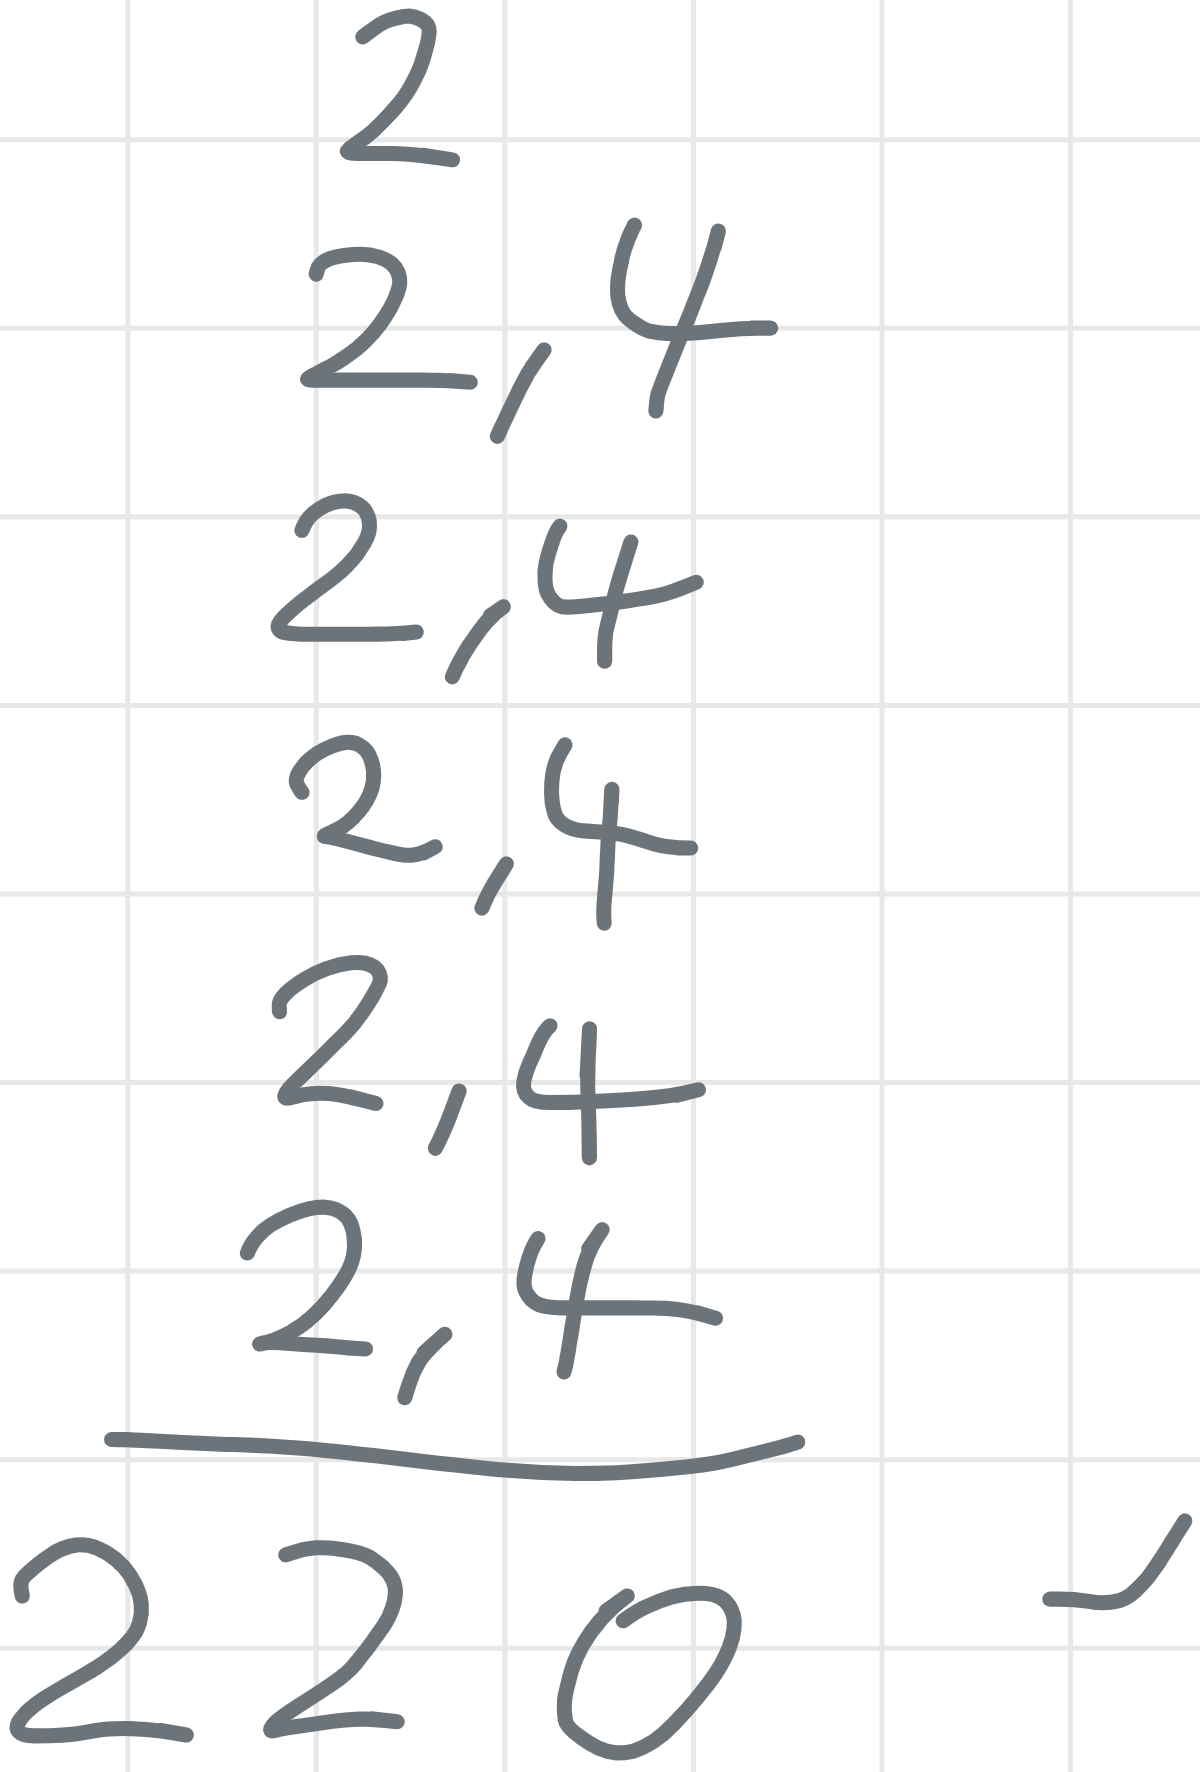 2
2,4
2,4
2,4
2,4
2,4
220